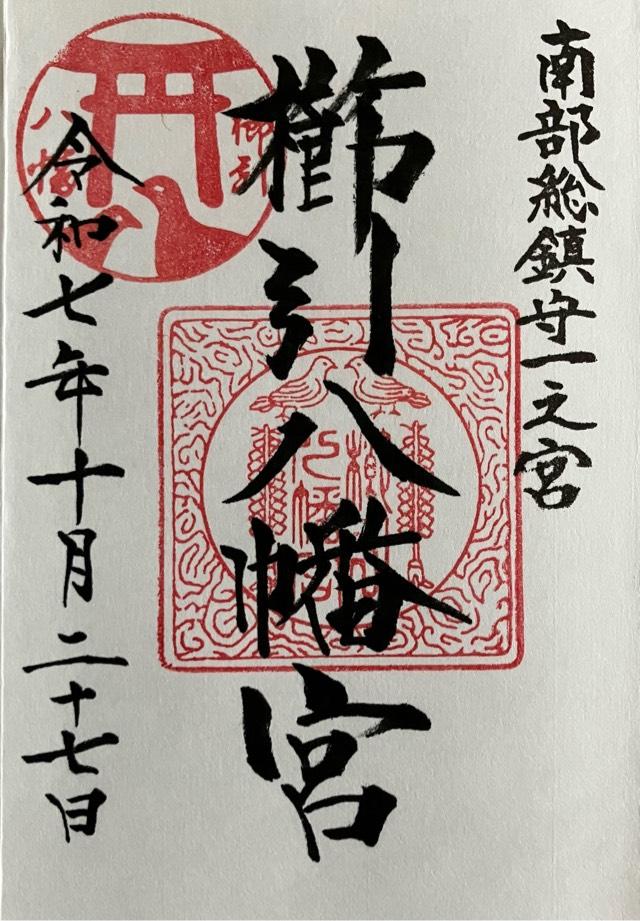 南部総鎮守一之宮
櫛引八幡宮
令和七年十月二十七日
櫛引
八幡